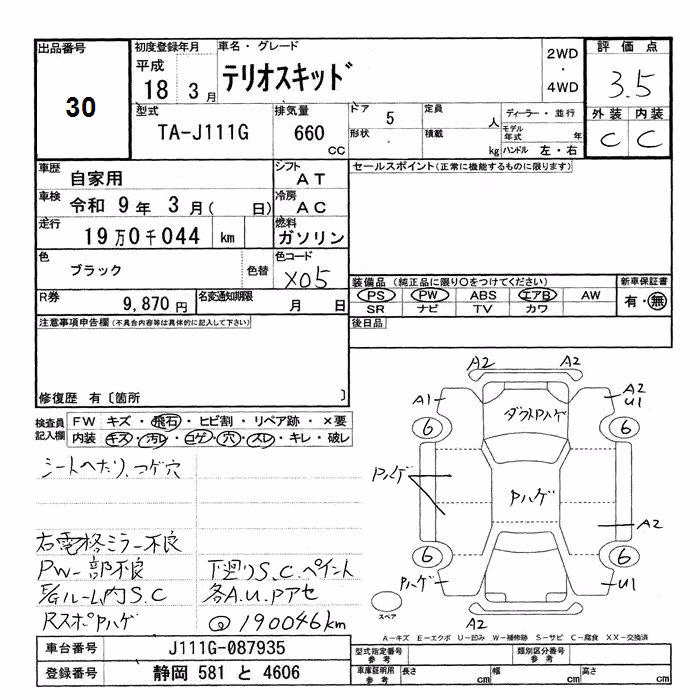 出品番号
30
初度登録年月
平成
18 3月
車名・グレード
テリオスキッド
2WD
・
4WD
評価点
3.5
外装 内装
C C
型式
TA-J111G
排気量
660
cc
ドア 5
形状
定員 人
積載 kg
ディーラー・並行
モデル年式 年
ハンドル 左・右
車歴
自家用
シフト
AT
車検
令和 9年 3月( 日)
冷房
AC
走行
19万0千044 km
燃料
ガソリン
色
ブラック
色替
色コード
X05
R券
9,870円
名変通知期限
月 日
セールスポイント(正常に機能するものに限ります)
装備品 (純正品に限り○をつけてください)
PS PW ABS エアB AW
SR ナビ TV カワ
新車保証書
有・無
後日品
注意事項申告欄(不具合内容等は具体的に記入して下さい)
修復歴 有〔箇所 〕
検査員
記入欄
FW キズ・飛石・ヒビ割・リペア跡・×要
内装 キズ・汚レ・コゲ・穴・スレ・キレ・破レ
シートヘたり、コゲ穴
右電格ミラー不良
PW一部不良
下廻りS.C.ペイント
ルーム内S.C
各A.U.Pアセ
RスポPハゲ
@190046km
A2
A2
A1
A2
U1
ダクトPハゲ
6
6
Pハゲ
Pハゲ
A2
6
6
Pハゲ
U1
A2
スペア
A-キズ E-エクボ U-凹み W-補修跡 S-サビ C-腐食 XX-交換済
車台番号
J111G-087935
登録番号
静岡 581 と 4606
型式指定番号
参考
類別区分番号
参考
車庫証明用
参考
長さ cm 幅 cm 高さ cm